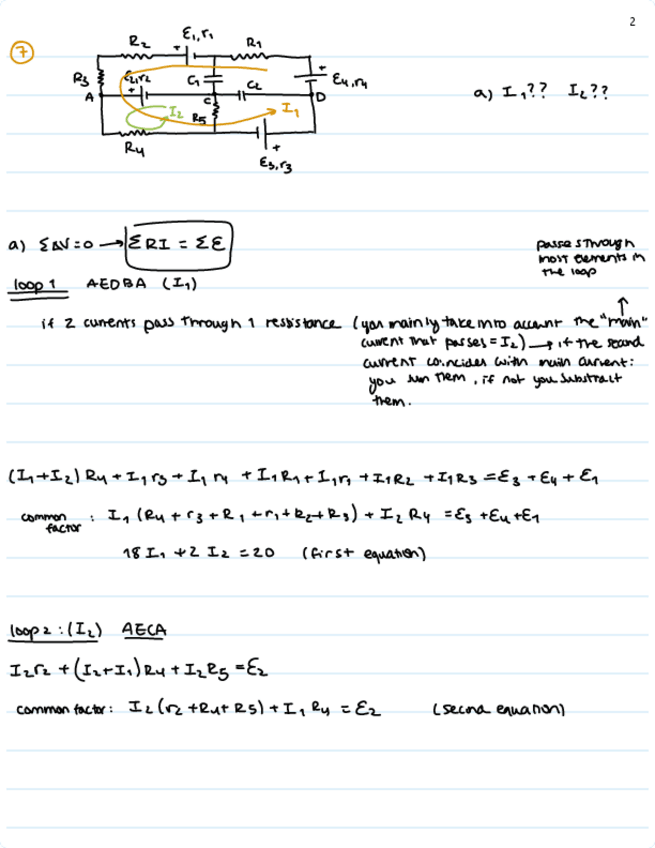 2
7
R2
ε1,r1
R1
R3
ε2,r2
C1
C2
ε4,r4
A
C
D
I2
R5
I1
R4
ε3,r3
a) I1?? I2??
a) ΣΔV=0 → ΣRI = Σε
passes through
most elements in
the loop
loop 1 AEDBA (I1)
if 2 currents pass through 1 resistance (you mainly take into account the "main"
current that passes = I2) → if the second
current coincides with main current:
you sum them, if not you substract
them.
(I1+I2) R4 + I1 r3 + I1 r4 + I1 R1 + I1 r1 + I1 R2 + I1 R3 = ε3 + ε4 + ε1
common factor : I1 (R4 + r3 + R1 + r1 + R2 + R3) + I2 R4 = ε3 + ε4 + ε1
18 I1 + 2 I2 = 20 (first equation)
loop 2 : (I2) AECA
I2r2 + (I2+I1) R4 + I2 R5 = ε2
common factor : I2 (r2 + R4 + R5) + I1 R4 = ε2 (second equation)